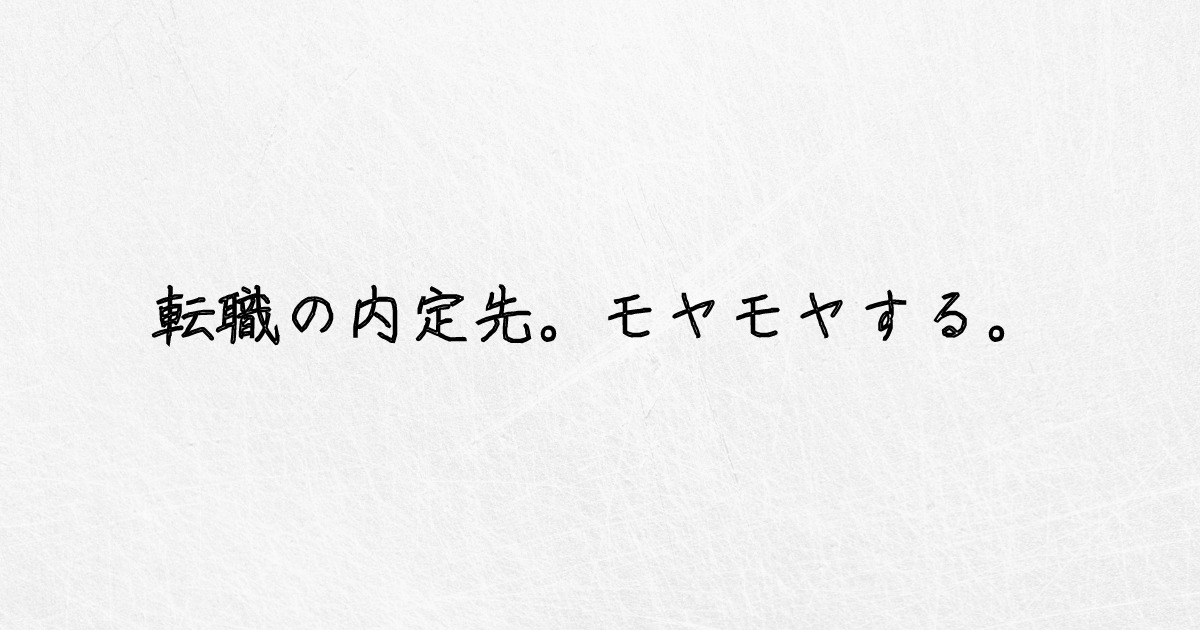 転職の内定先。モヤモヤする。